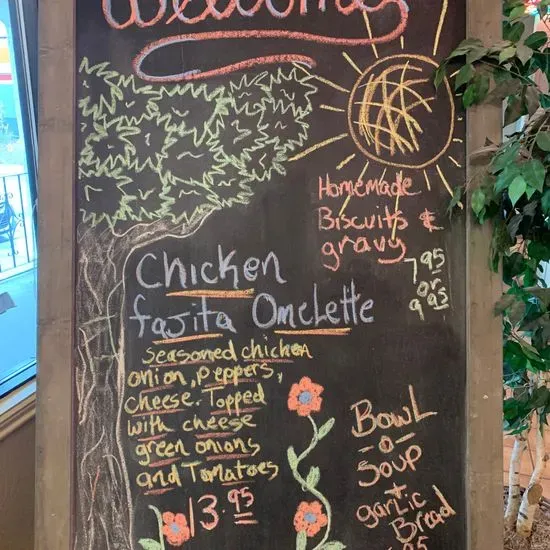 Welcome
Homemade
Biscuits &
gravy
7.95
or
9.95
Chicken
fajita Omelette
Seasoned chicken
onion, peppers,
cheese. Topped
with cheese
green onions
and Tomatoes
13.95
Bowl
-o-
Soup
+
garlic
Bread